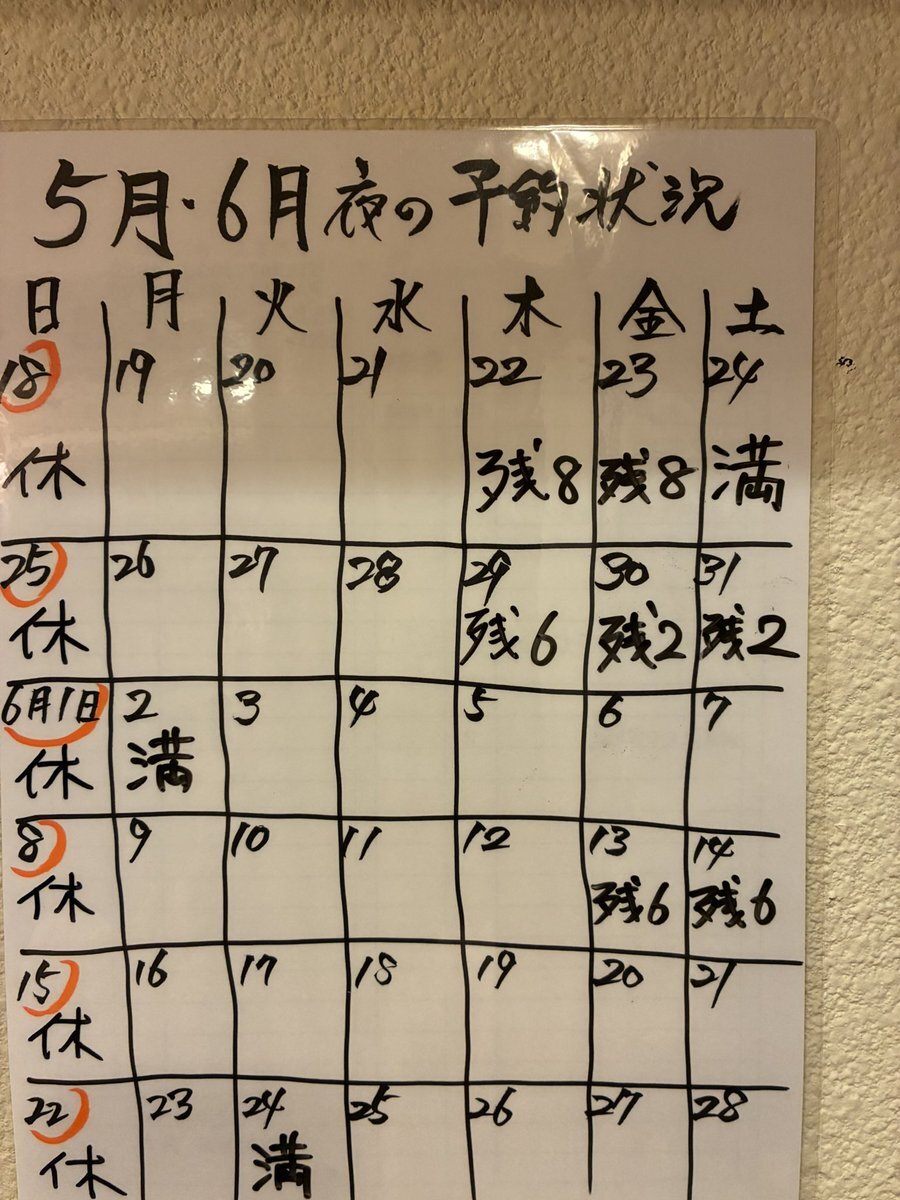 5月・6月夜の予約状況
日 月 火 水 木 金 土
18 19 20 21 22 23 24
休 残8 残8 満
25 26 27 28 29 30 31
休 残6 残2 残2
6月1日 2 3 4 5 6 7
休 満
8 9 10 11 12 13 14
休 残6 残6
15 16 17 18 19 20 21
休
22 23 24 25 26 27 28
休 満